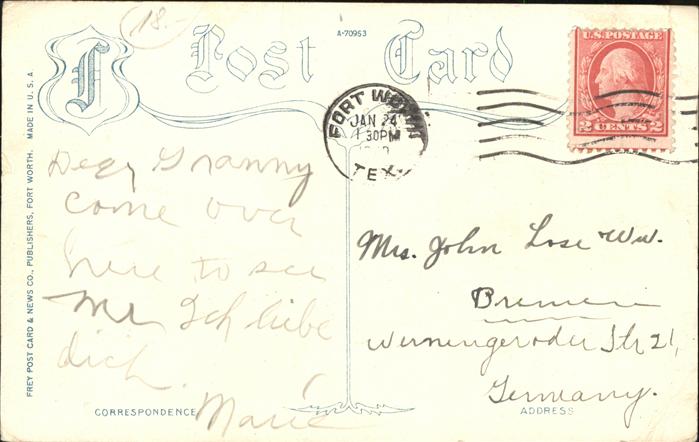 18.
A-70953
Post Card
U.S. POSTAGE
2 CENTS 2
FORT WORTH
JAN 24
1 30PM
TEX.
MADE IN U.S.A.
FREY POST CARD & NEWS CO., PUBLISHERS, FORT WORTH.
Dear Granny
come over
here to see
me Ich liebe
dich.
Marie
CORRESPONDENCE
Mrs. John Lose Ww.
Bremen
Wernengeroder Str 21,
Germany.
ADDRESS